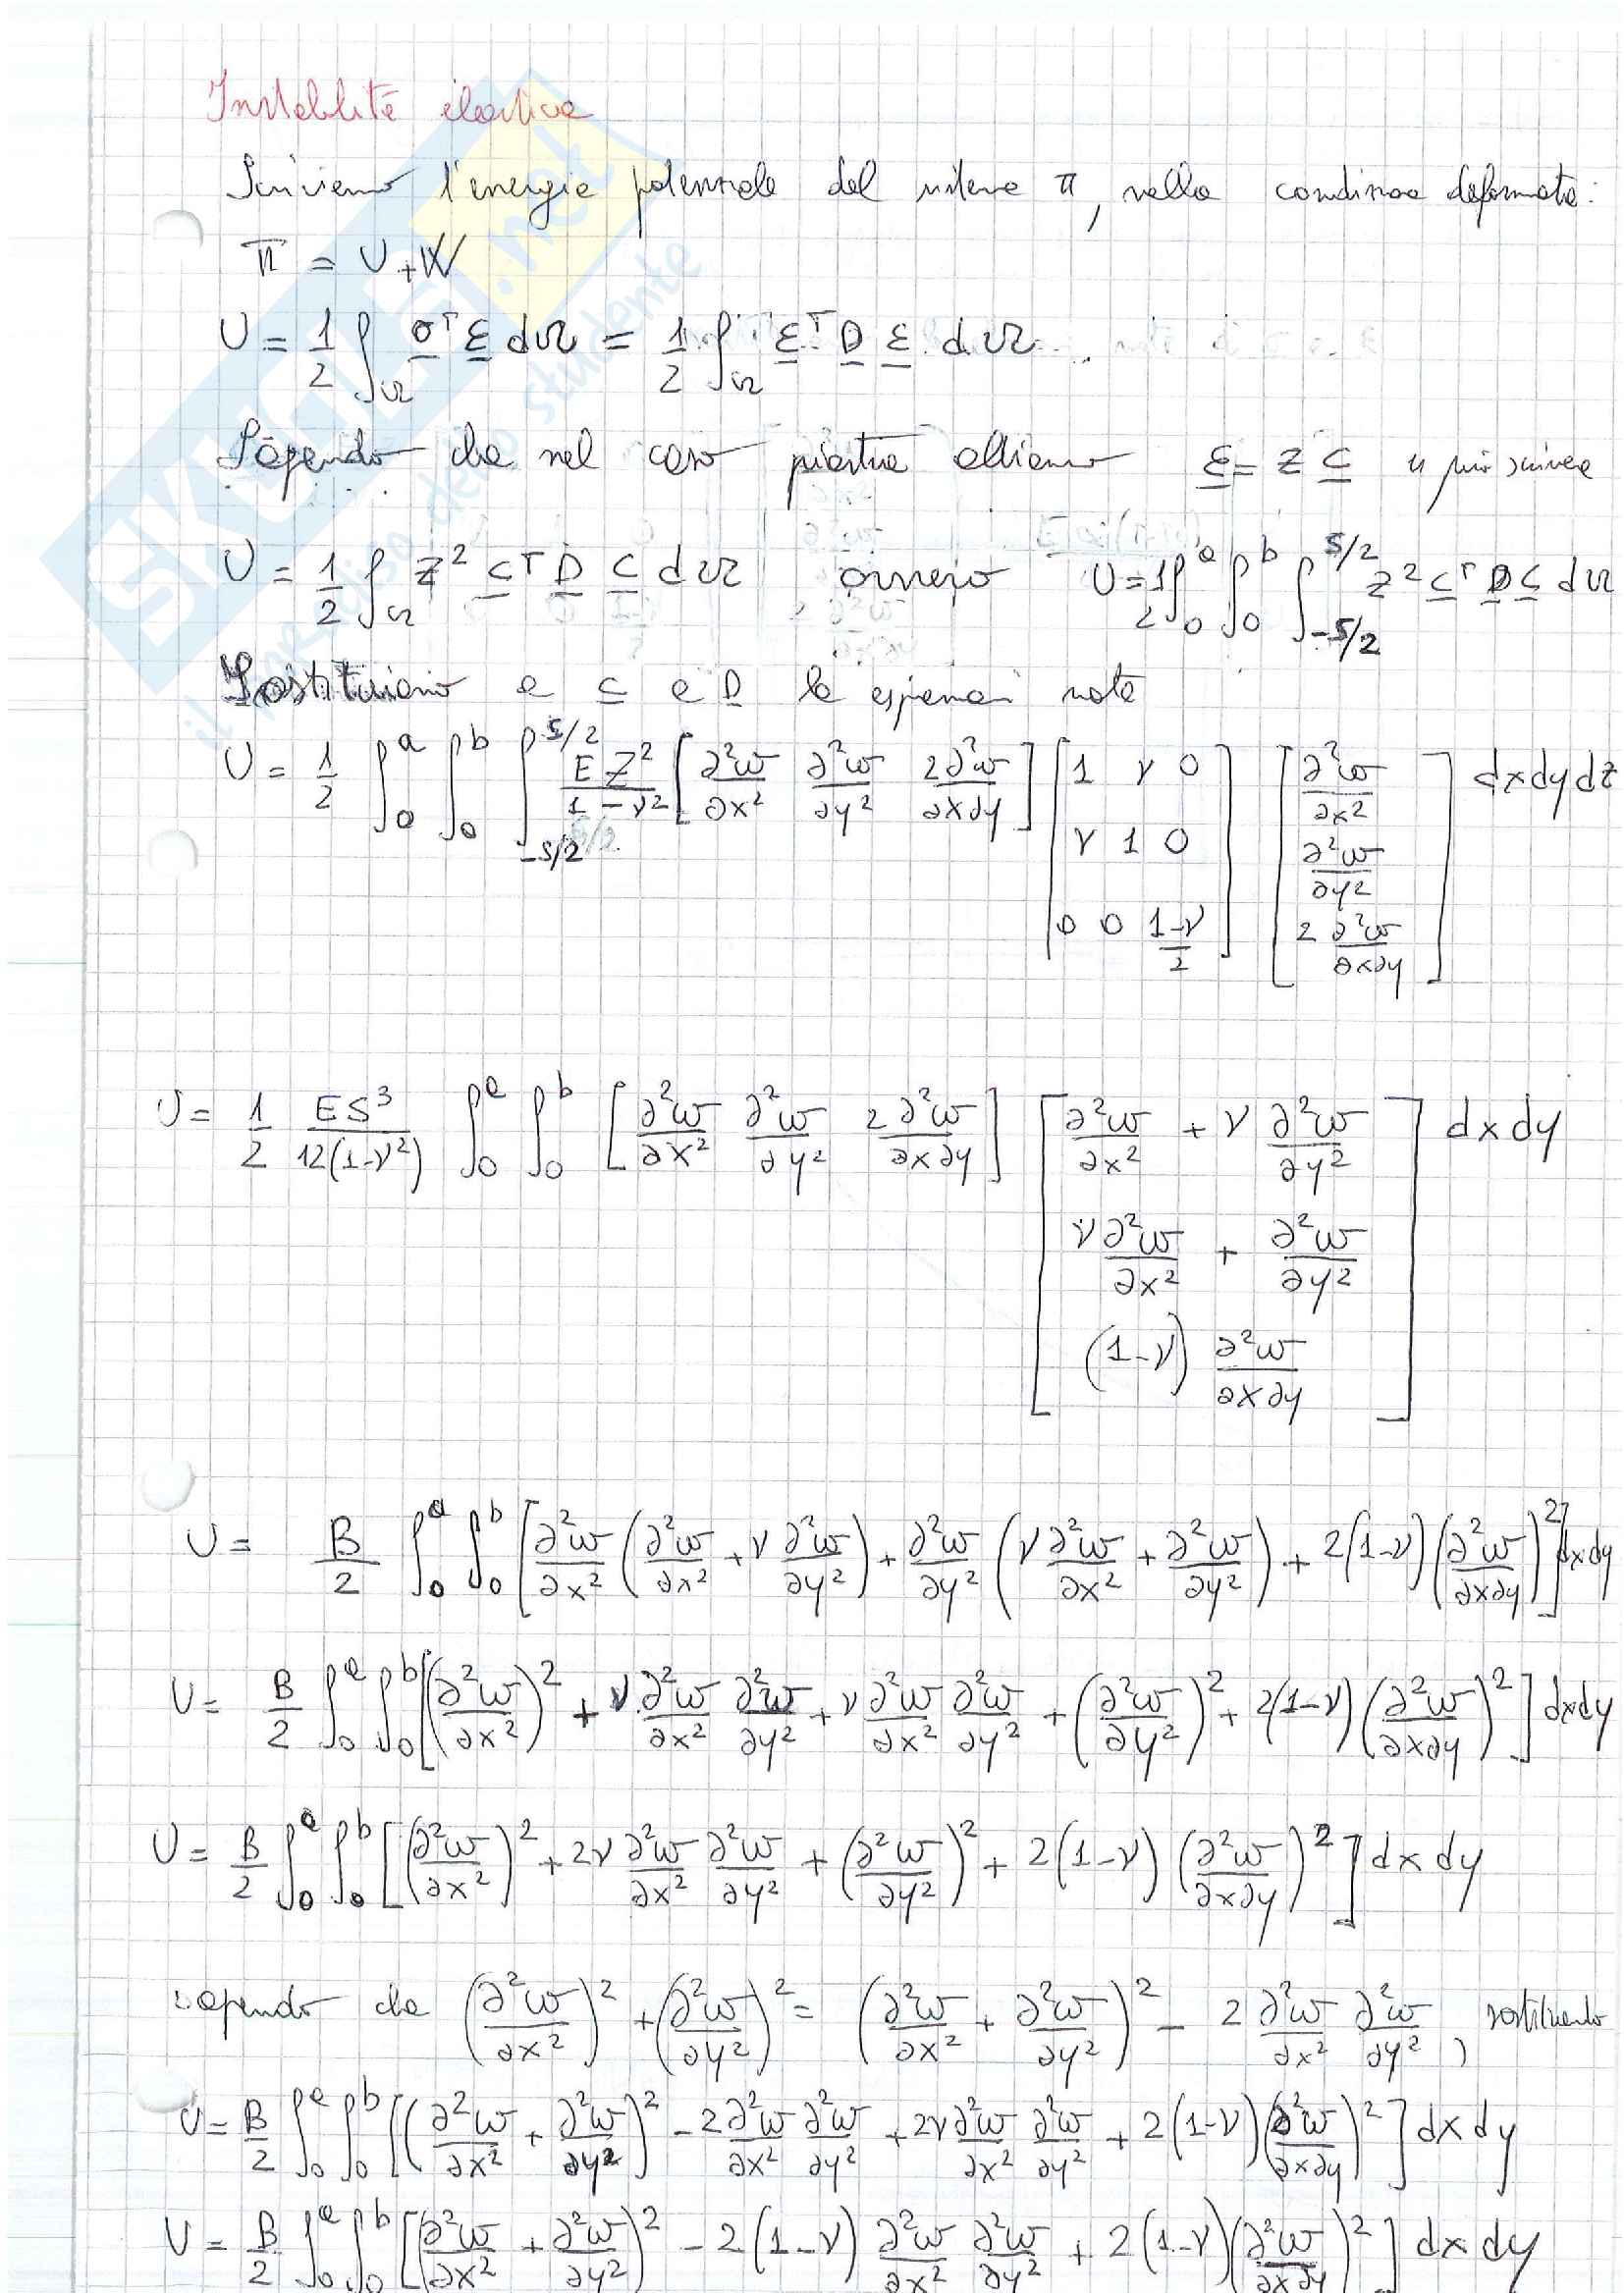 Instabilità elastica
Scriviamo l'energia potenziale del sistema π, nella condizione deformata:
π = U + W
U = 1/2 ∫_Ω σ^T ε dΩ = 1/2 ∫_Ω ε^T D ε dΩ
Sapendo che nel caso piastra abbiamo ε = z C si può scrivere
U = 1/2 ∫_Ω z² C^T D C dΩ ovvero U = 1/2 ∫_0^a ∫_0^b ∫_{-s/2}^{s/2} z² C^T D C dΩ
Sostituiamo a C e D le espressioni note
U = 1/2 ∫_0^a ∫_0^b ∫_{-s/2}^{s/2} E z²/(1-ν²) [∂²w/∂x² ∂²w/∂y² 2∂²w/∂x∂y] [1 ν 0; ν 1 0; 0 0 (1-ν)/2] [∂²w/∂x²; ∂²w/∂y²; 2 ∂²w/∂x∂y] dxdydz
U = 1/2 Es³/(12(1-ν²)) ∫_0^a ∫_0^b [∂²w/∂x² ∂²w/∂y² 2∂²w/∂x∂y] [∂²w/∂x² + ν ∂²w/∂y²; ν∂²w/∂x² + ∂²w/∂y²; (1-ν) ∂²w/∂x∂y] dxdy
U = B/2 ∫_0^a ∫_0^b [∂²w/∂x² (∂²w/∂x² + ν ∂²w/∂y²) + ∂²w/∂y² (ν ∂²w/∂x² + ∂²w/∂y²) + 2(1-ν) (∂²w/∂x∂y)²] dxdy
U = B/2 ∫_0^a ∫_0^b [(∂²w/∂x²)² + ν ∂²w/∂x² ∂²w/∂y² + ν ∂²w/∂x² ∂²w/∂y² + (∂²w/∂y²)² + 2(1-ν) (∂²w/∂x∂y)²] dxdy
U = B/2 ∫_0^a ∫_0^b [(∂²w/∂x²)² + 2ν ∂²w/∂x² ∂²w/∂y² + (∂²w/∂y²)² + 2(1-ν) (∂²w/∂x∂y)²] dxdy
sapendo che (∂²w/∂x²)² + (∂²w/∂y²)² = (∂²w/∂x² + ∂²w/∂y²)² - 2 ∂²w/∂x² ∂²w/∂y², sostituendo
U = B/2 ∫_0^a ∫_0^b [(∂²w/∂x² + ∂²w/∂y²)² - 2 ∂²w/∂x² ∂²w/∂y² + 2ν ∂²w/∂x² ∂²w/∂y² + 2(1-ν) (∂²w/∂x∂y)²] dxdy
U = B/2 ∫_0^a ∫_0^b [(∂²w/∂x² + ∂²w/∂y²)² - 2(1-ν) ∂²w/∂x² ∂²w/∂y² + 2(1-ν) (∂²w/∂x∂y)²] dxdy
SKUOLA.net
il paradiso dello studente